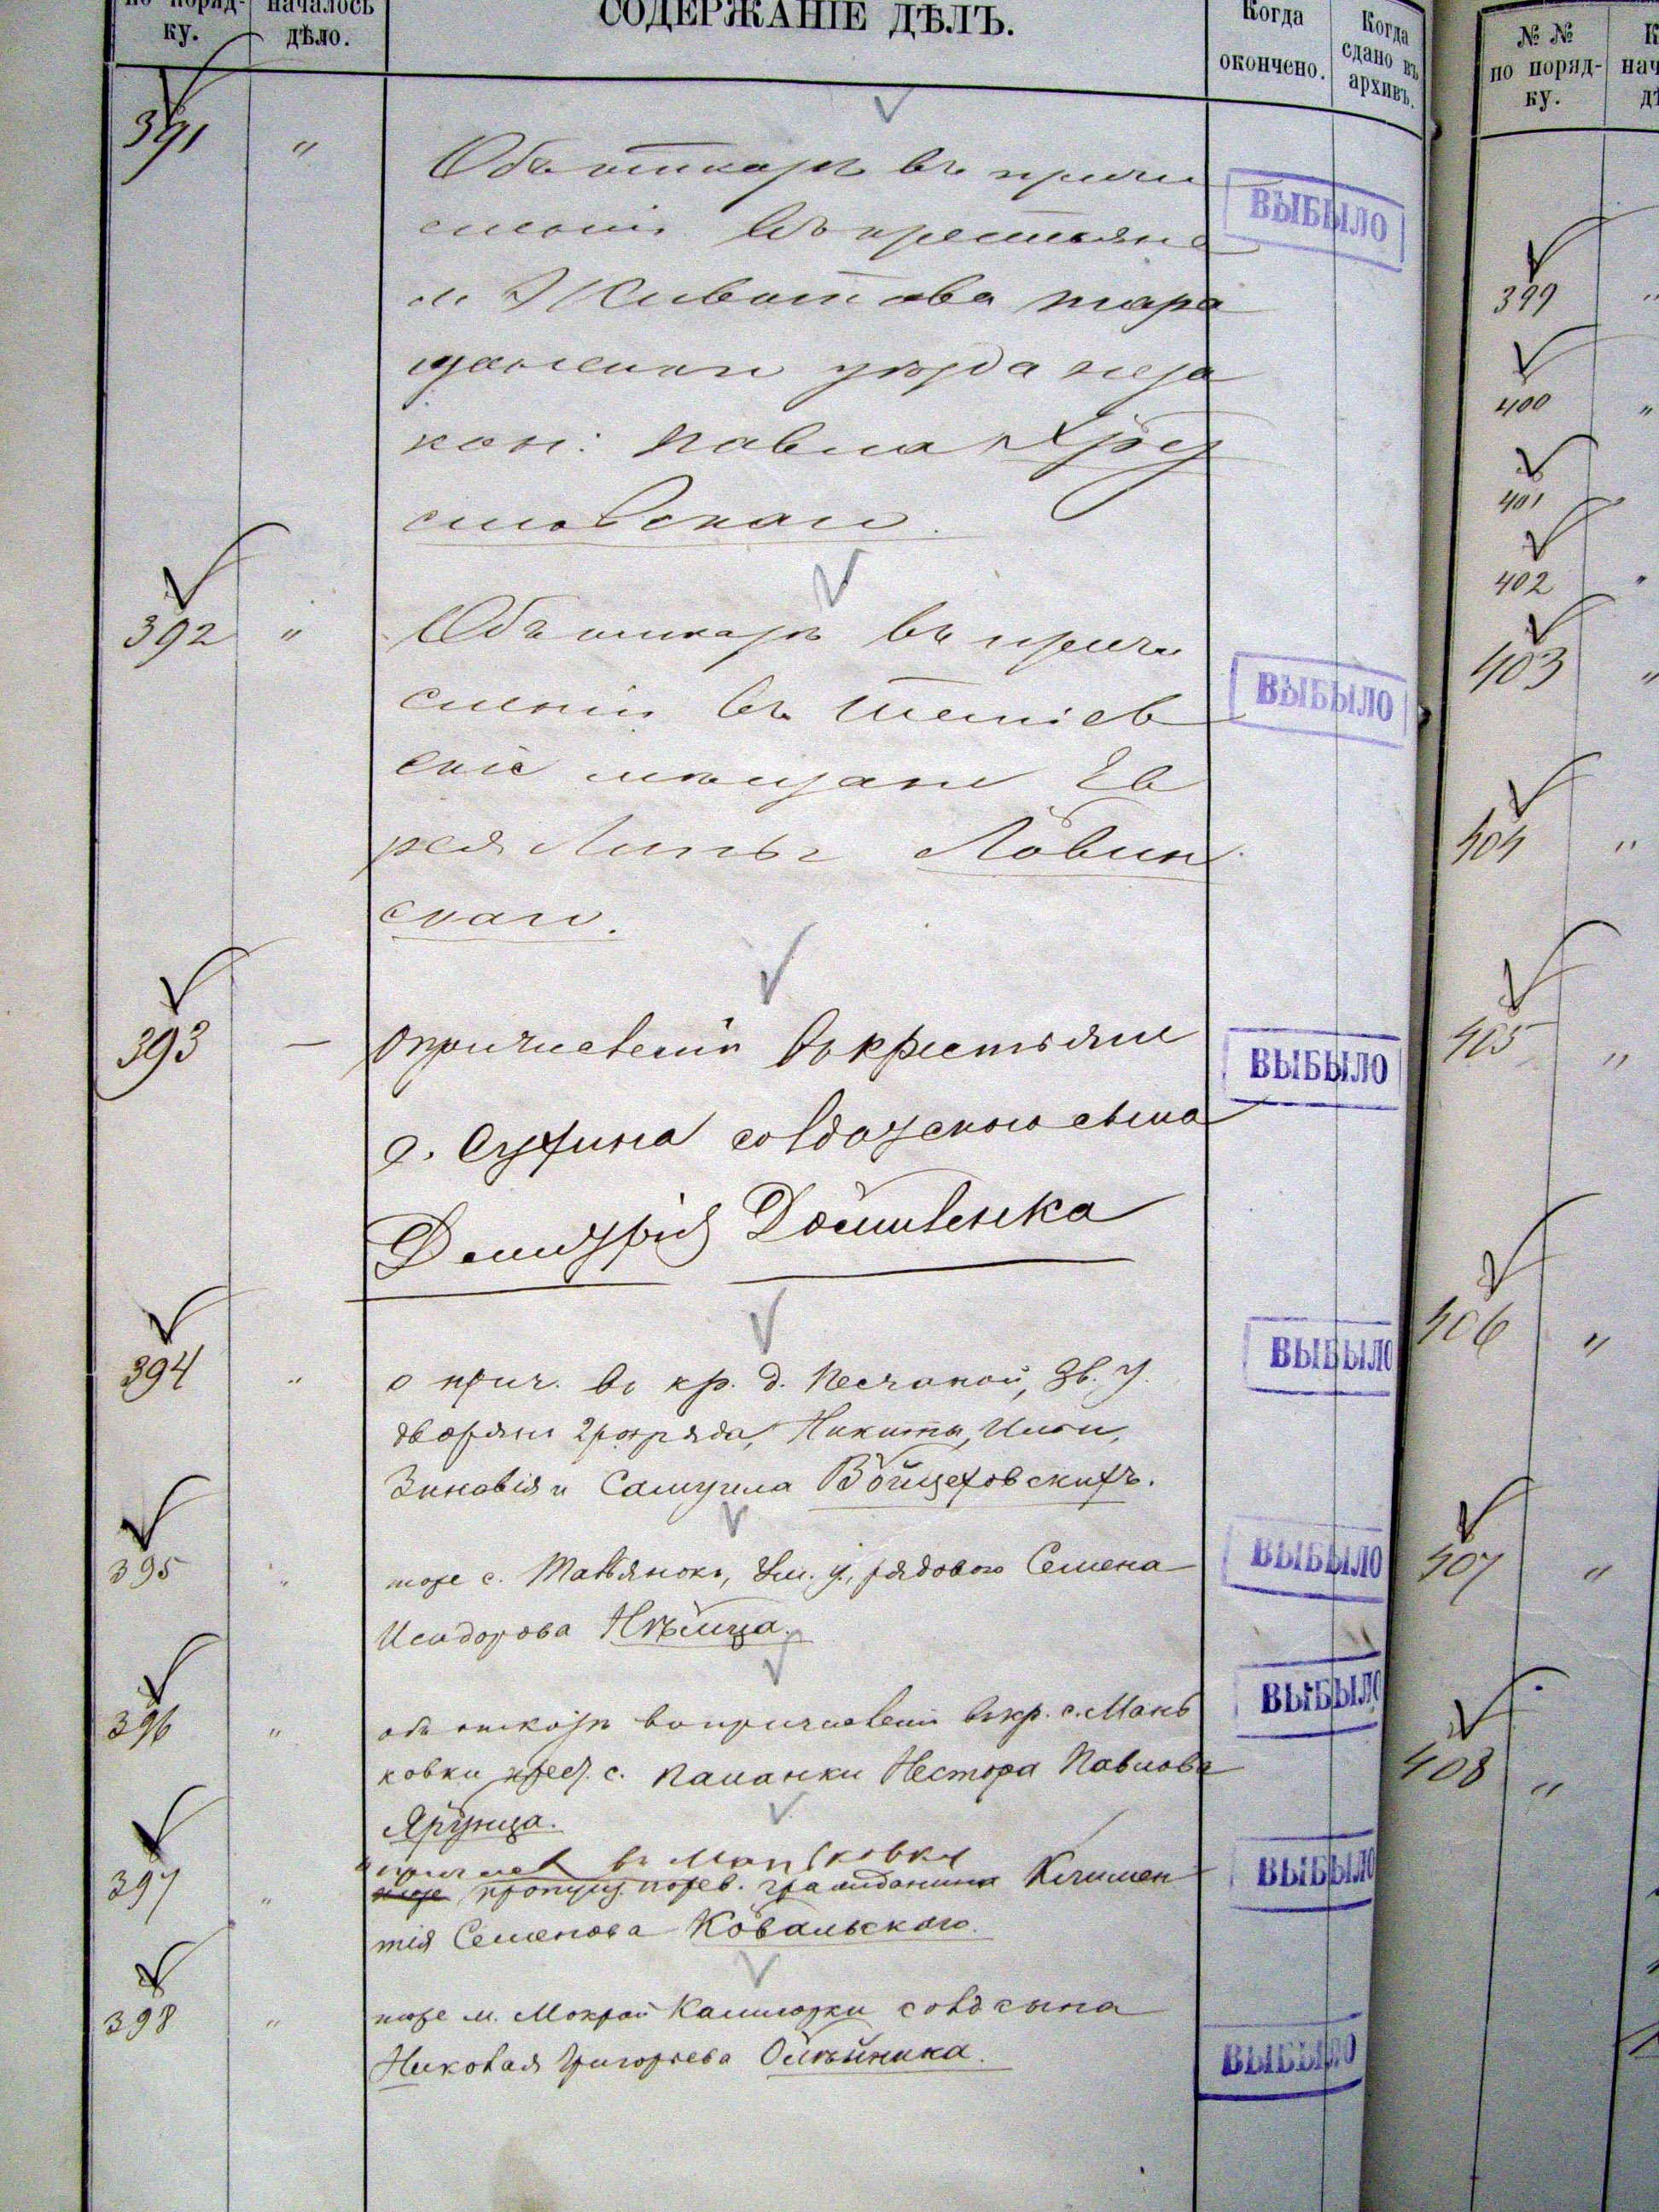 по поряд-
ку.
началось
дѣло.
СОДЕРЖАНІЕ ДѢЛЪ.
Когда
окончено.
Когда
сдано въ
архивъ.
391 "
Объ отказѣ въ причи
сленіи въ крестьяне
м. Животова тара
щанскаго уѣзда
кон: Павла Хру
словскаго.
ВЫБЫЛО
392 "
Объ отказѣ въ причи
сленіи въ Тетіев
скіе мѣщане Ев
рея Липы Ловин
скаго.
ВЫБЫЛО
393 —
О причисленіи въ крестьяне
с. Сухина солдатскаго сына
Димитрія Доминенка
ВЫБЫЛО
394 "
о прич. въ кр. д. Песчаной, Зв. у.
дворянъ 2 разряда, Никиты, Ильи,
Зиновія и Самуила Войцеховскихъ.
ВЫБЫЛО
395 "
тоже с. Тальянокъ, Ум. у., рядового Семена
Исидорова Нѣмца.
ВЫБЫЛО
396 "
объ отказѣ въ причисленіи въ кр. с. Мань
ковки крест. с. Паланки Нестора Павлова
Ярунца.
ВЫБЫЛО
397 "
причисл въ Маньковку
тоже гражданина Климен
тія Семенова Ковальскаго.
ВЫБЫЛО
398 "
тоже м. Мокрой Калигорки солд сына
Николая Григорьева Олѣйника.
ВЫБЫЛО
№ №
по поряд-
ку.
399 "
400 "
401
402 "
403 "
404 "
405 "
406 "
407 "
408 "